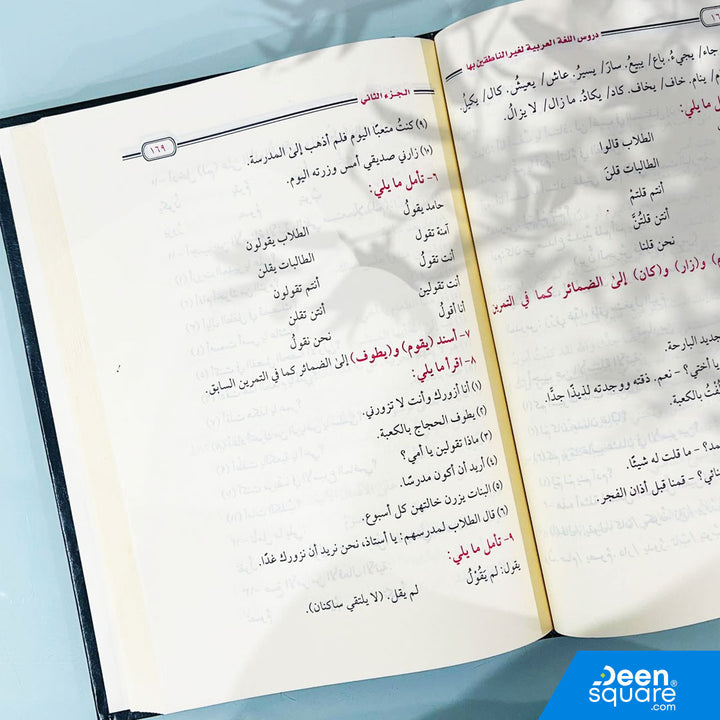 دروس اللغة العربية لغير الناطقين بها
جاء/ يجيءُ. باع/ يبيعُ. سارَ/ يسيرُ. عاش/ يعيشُ. كال/ يكيلُ.
ينام. خاف/ يخاف. كاد/ يكادُ. ما زال/ لا يزالُ.
ما يلي:
الطلاب قالوا
الطالبات قلنَ
أنتم قلتمْ
أنتن قلتُنَّ
نحن قلنا
و(زار) و(كان) إلى الضمائر كما في التمرين
جديد البارحة.
يا أختي؟ – نعم. ذقته ووجدته لذيذًا جدًّا.
بالكعبة.
– ما قلت له شيئًا.
– قمنا قبل أذان الفجر.
الجزء الثاني
١٦٩
(٩) كنتُ متعبًا اليوم فلم أذهب إلى المدرسة.
(١٠) زارني صديقي أمس وزرته اليوم.
٦- تأمل ما يلي:
حامد يقولُ الطلاب يقولون
آمنة تقول الطالبات يقلن
أنت تقولُ أنتم تقولون
أنت تقولين أنتن تقلن
أنا أقولُ نحن نقولُ
٧- أسند (يقوم) و(يطوف) إلى الضمائر كما في التمرين السابق.
٨- اقرأ ما يلي:
(١) أنا أزورك وأنت لا تزورني.
(٢) يطوف الحجاج بالكعبة.
(٣) ماذا تقولين يا أمي؟
(٤) أريد أن أكون مدرسًا.
(٥) البنات يزرن خالتهن كل أسبوع.
(٦) قال الطلاب لمدرسهم: يا أستاذ، نحن نريد أن نزورك غدًا.
٩- تأمل ما يلي:
يقول: لم يَقُوْلْ لم يقل. (لا يلتقي ساكنان).
Deen
square®
.com